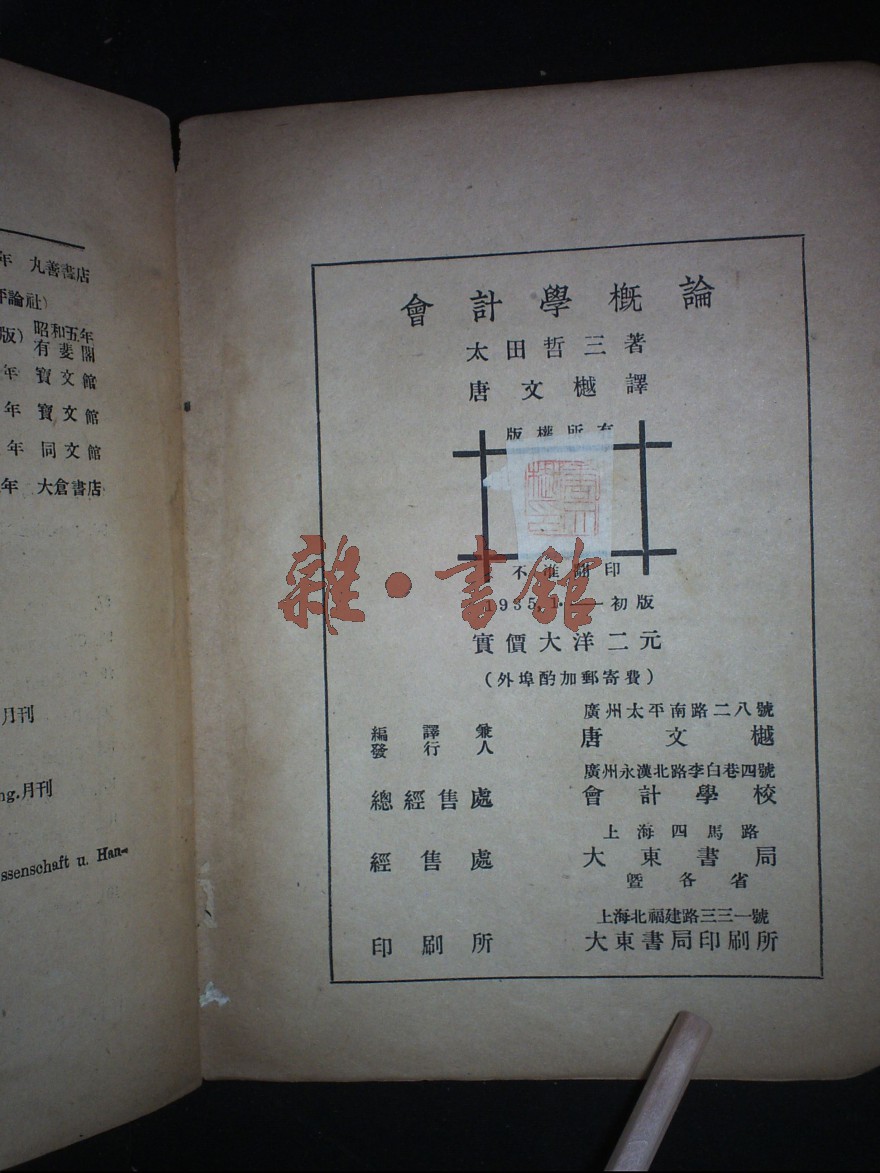 年 丸善書店
平論社）
版）昭和五年
有斐閣
年 寶文館
年 寶文館
年 同文館
年 大倉書店
月刊
ng.月刊
ssenschaft u. Han-
會計學概論
太田哲三著
唐文樾譯
版權所有
不准翻印
1935.1.——初版
實價大洋二元
（外埠酌加郵寄費）
編譯兼
發行人
廣州太平南路二八號
唐文樾
總經售處
廣州永漢北路李白巷四號
會計學校
經售處
上海四馬路
大東書局
暨各省
印刷所
上海北福建路三三一號
大東書局印刷所
雜·書館